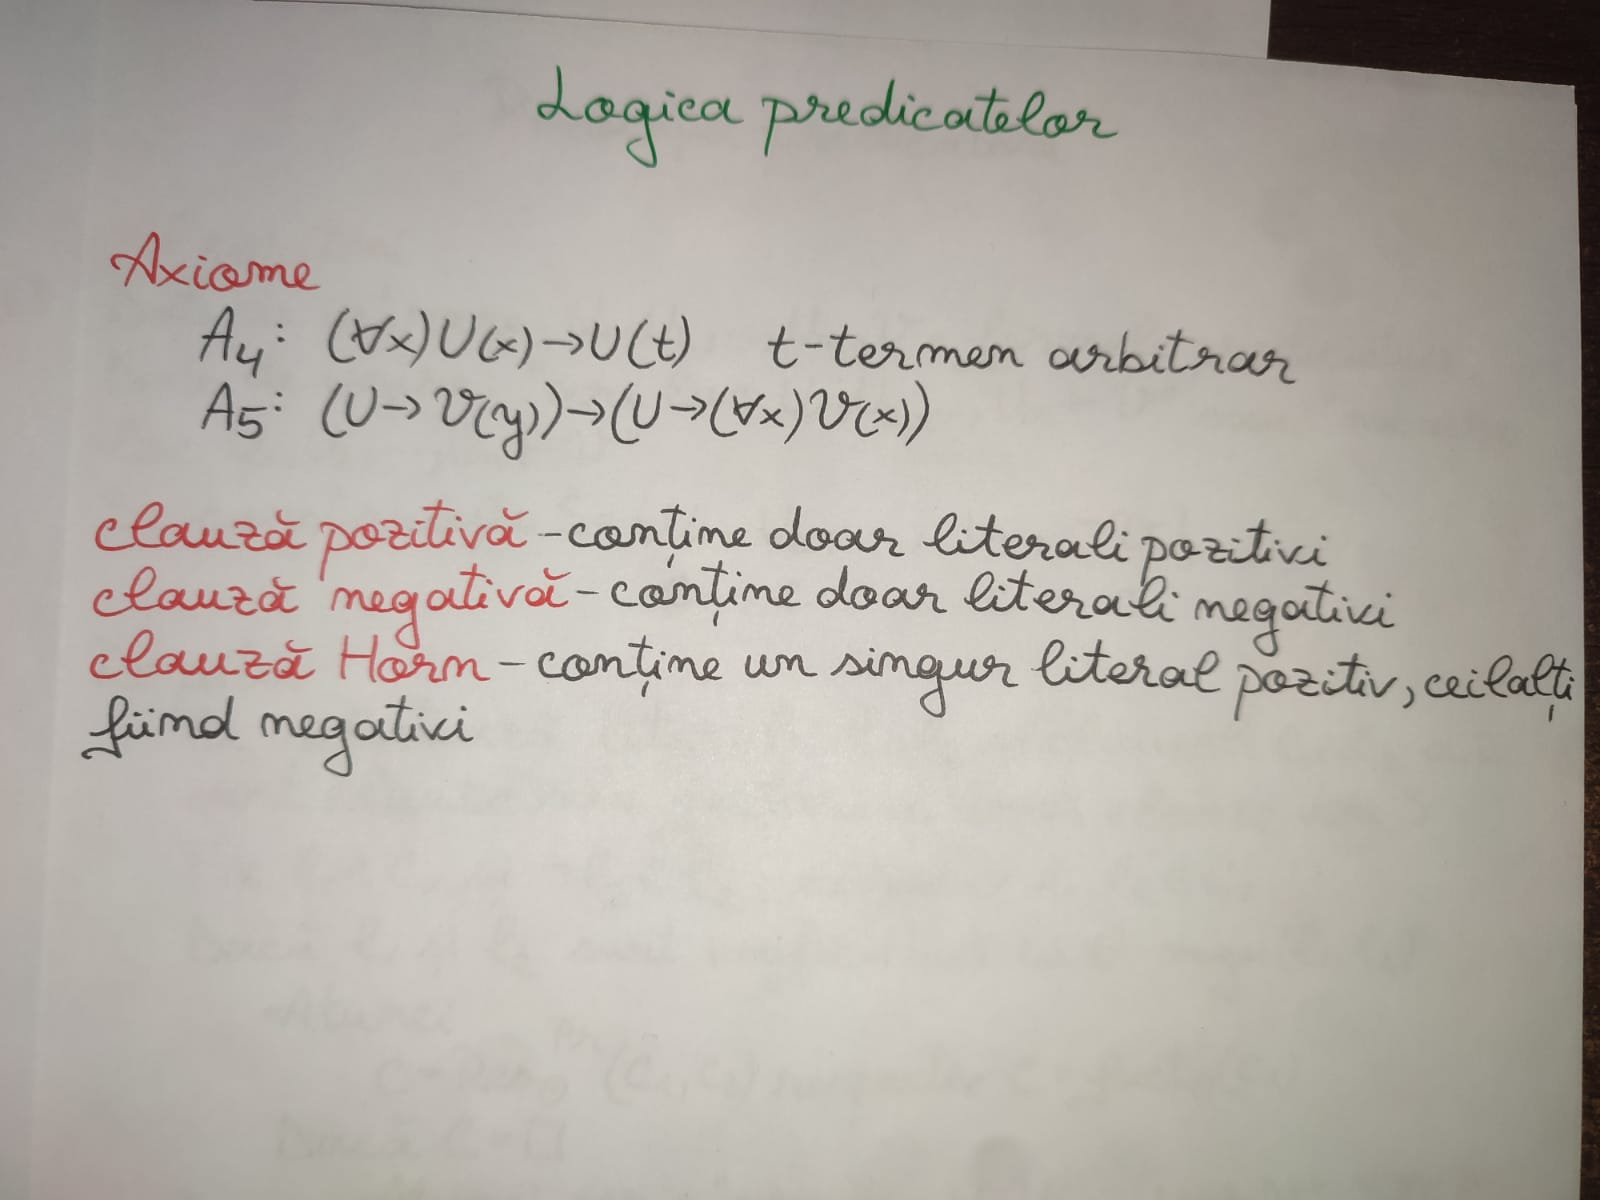 Logica predicatelor
Axiome
A4: (∀x)U(x)→U(t) t-termen arbitrar
A5: (U→V(y))→(U→(∀x)V(x))
clauză pozitivă - conține doar literali pozitivi
clauză negativă - conține doar literali negativi
clauză Horn - conține un singur literal pozitiv, ceilalți
fiind negativi